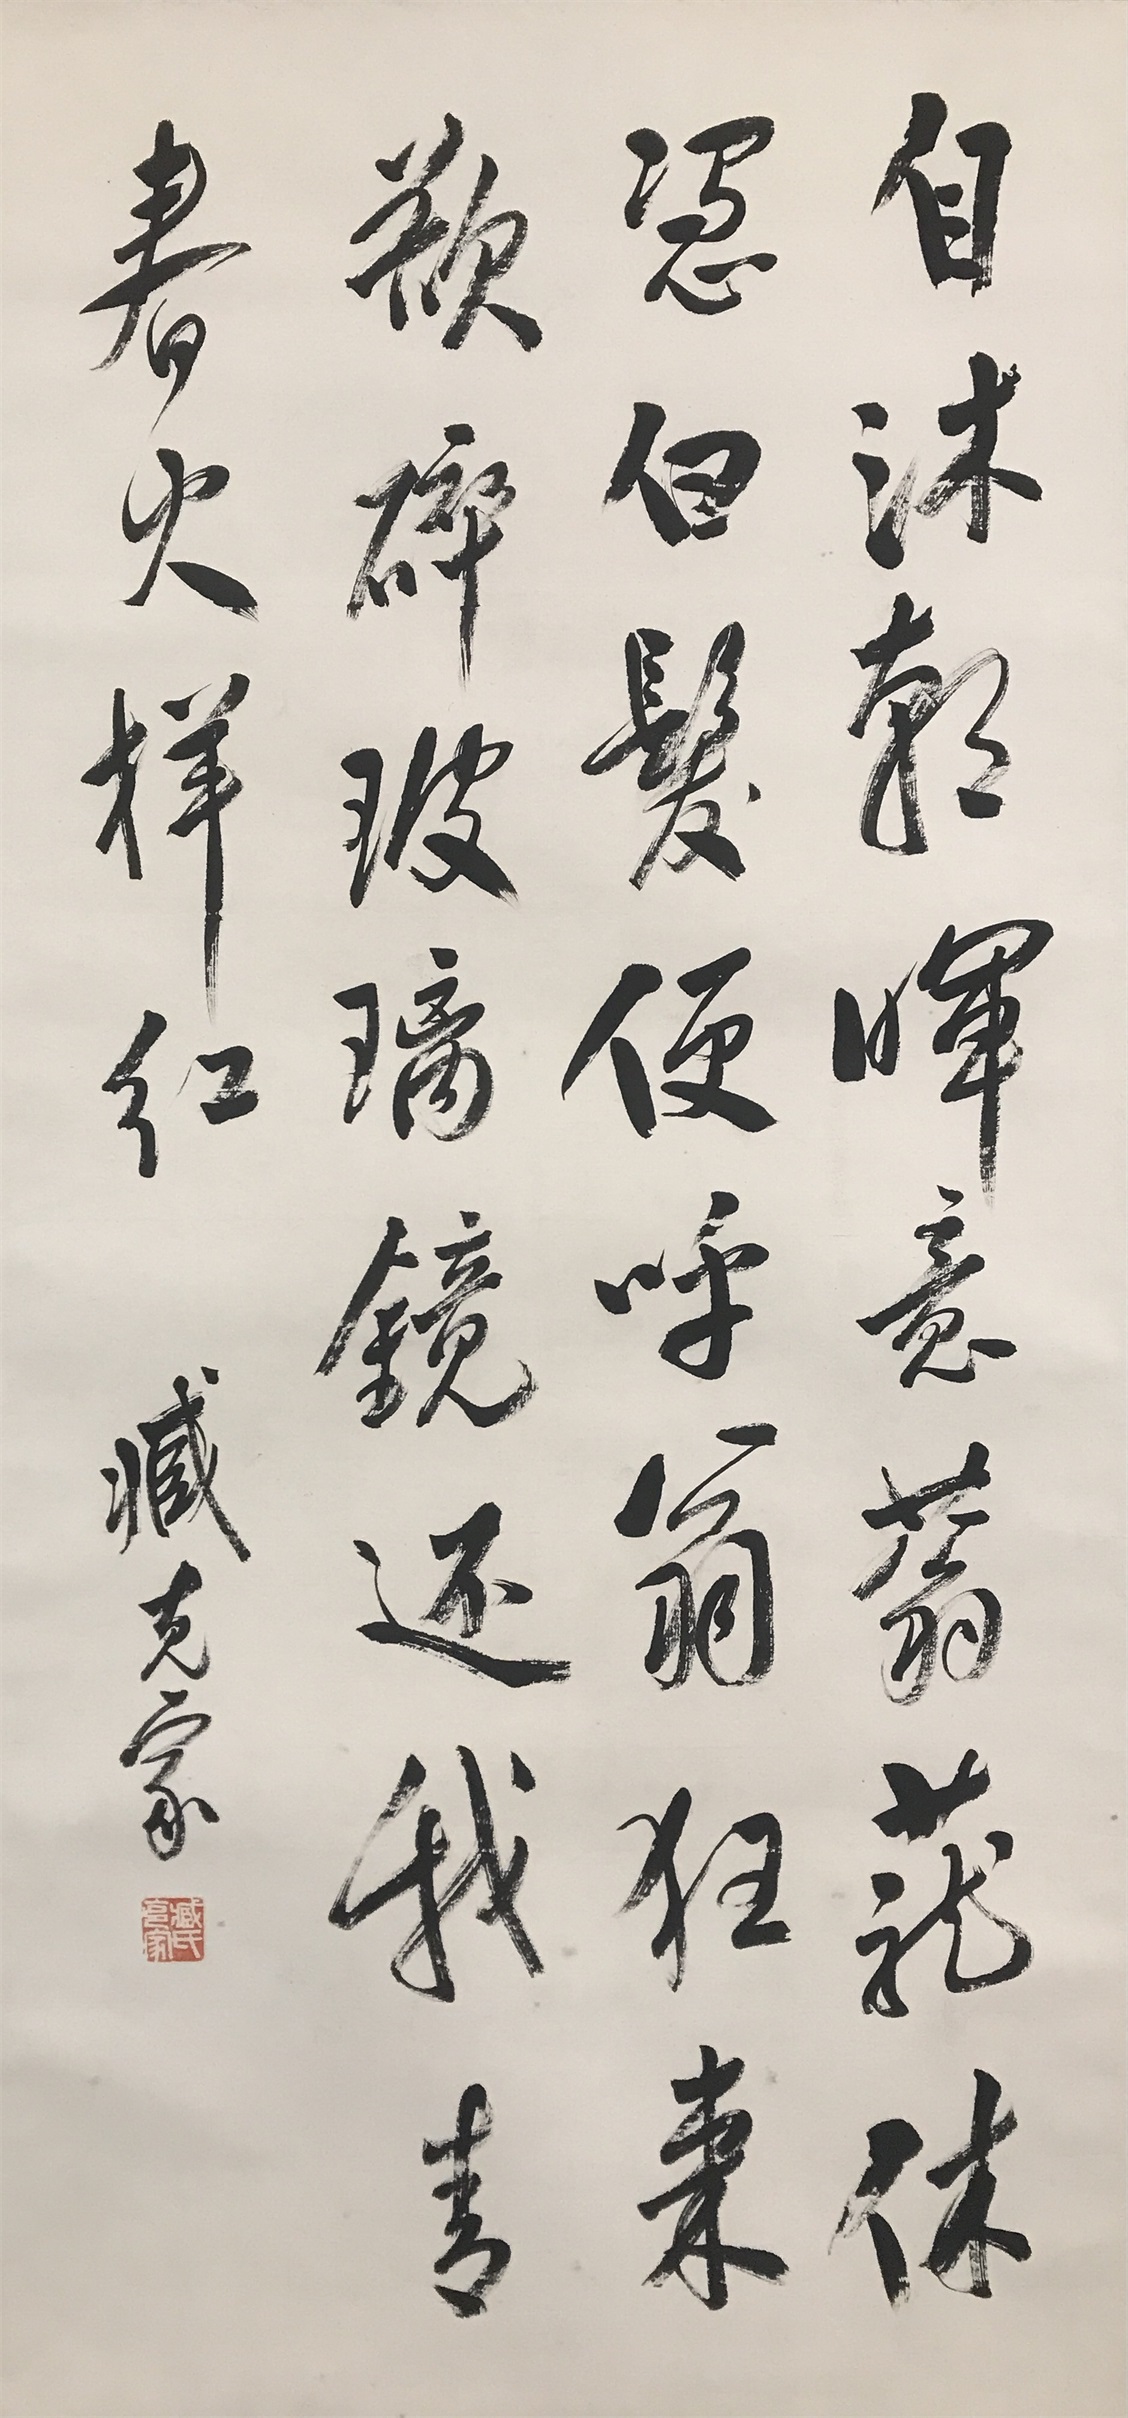 自沐朝暉意蓊蘢休
憑白髮便呼翁狂来
欲碎玻璃鏡还我青
春火样红
臧克家
臧氏
克家